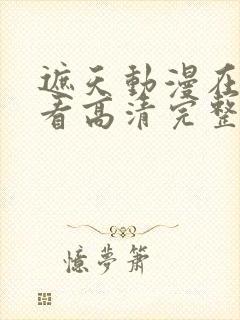 遮天動漫在
看高清完整
憶夢簫